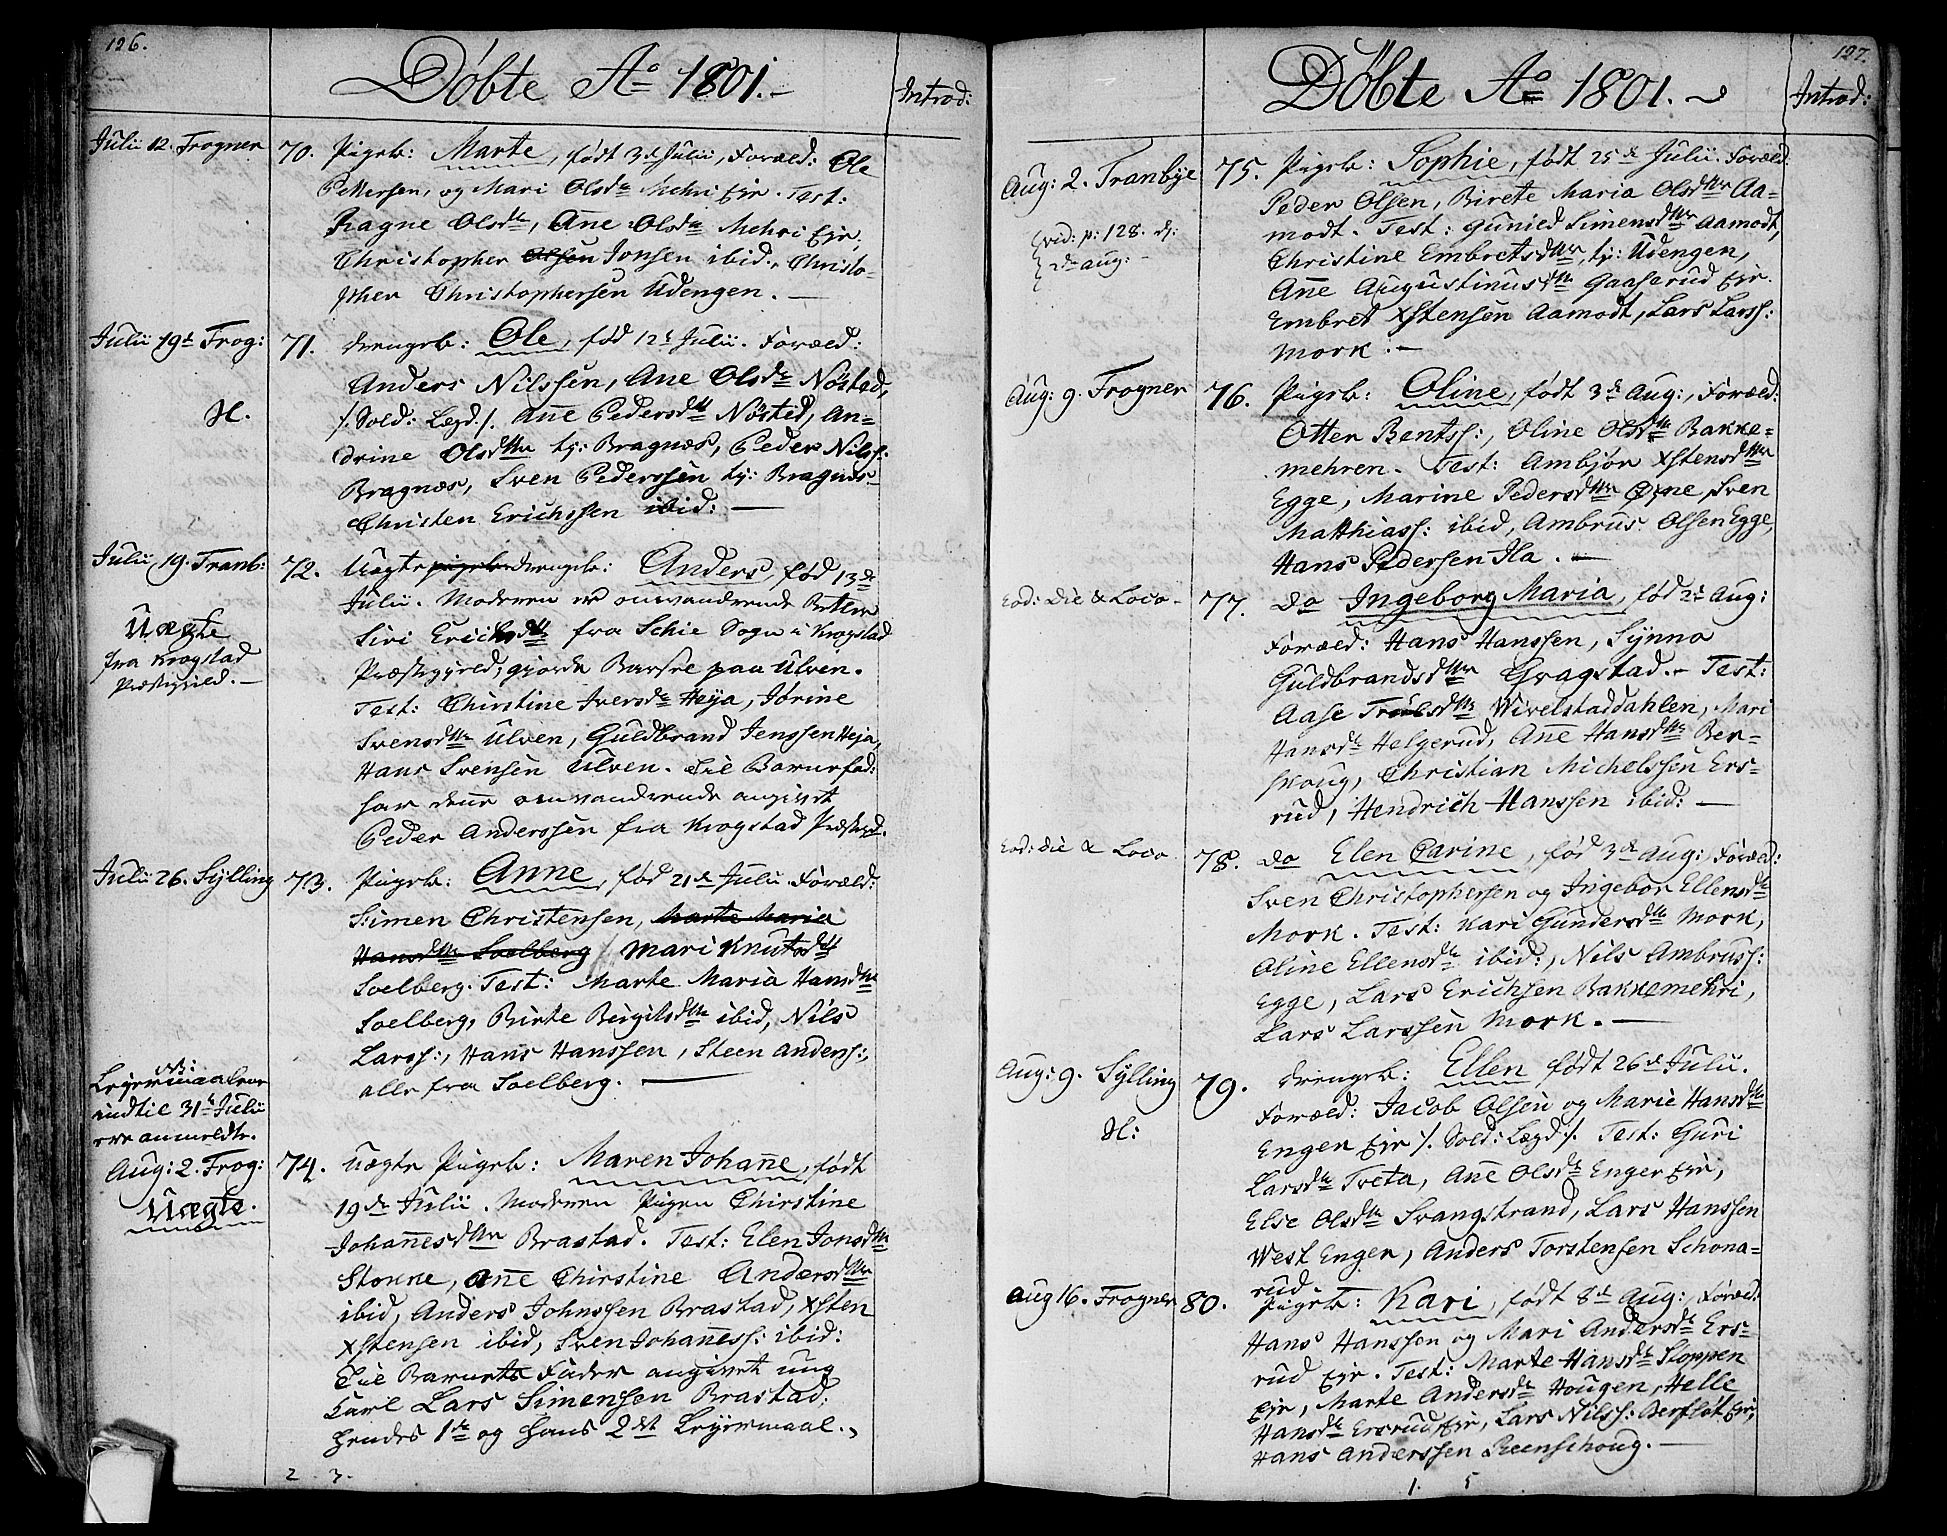 126.
Døbte Aº 1801.
Introd:
Julii 12. Frogner
70. Pigeb: Marte, født 3d Julii, Foræld: Ole
Pettersen, og Mari Olsdr Mehri Eje. Test:
Ragne Olsdr, Ane Olsdr Mehri Eje,
Christopher Olsen Jonsen ibid. Christo-
pher Christophersen Udengen.
Julii 19d Frog:
71. Drengeb: Ole, fød 12t Julii. Foræld:
Anders Nilssen, Ane Olsdr Nøstad,
/: Sold: Lægd :/. Ane Pedersdtr Nøsted, An-
H.
drine Olsdtr tj: Bragnæs, Peder Nils:
Bragnæs, Sven Pederssen tj: Bragnæs
Christen Erichssen ibid:
Julii 19. Tranb:
72. Uægte pigeb Drengeb: Anders, fød 13de
Julii. Moderen er omvandrende Betler
Uægte
Siri Erichsdtr fra Schie Sogn i Krogstad
fra Krogstad
Præstegield, gjorde Barsel paa Ulven.
Præstegield.
Test: Chirstine Iversdr Heja, Jörine
Svensdtr Ulven, Guldbrand Jenssen Heja,
Hans Svensen Ulven. Til Barnefad:
har denne omvandrende angivet
Peder Anderssen fra Krogstad Præstegd.
Julii 26. Sylling
73. Pigeb: Anne, fød 21de Julii Foræld:
Simen Christensen, Marte Maria
Hansdtr Soelberg / Mari Knutsdtr
Soelberg. Test: Marte Maria Hansdtr
Soelberg, Birte Bergitsdtr ibid, Nils
Larss:, Hans Hanssen, Steen Anders:,
alle fra Soelberg.
NB:
Leyermaalene
indtil 31te Julii
ere anmeldte.
Aug: 2. Frog:
74. Uægte Pigeb: Maren Johanne, født
Uægte.
19de Julii. Moderen Pigen Chirstine
Johannesdtr Brastad. Test: Elen Jonsdtr
Stokke, Ane Chirstine Andersdtr
ibid, Anders Johnssen Brastad, Xsten
Xstensen ibid, Sven Johanness: ibid:
Til Barnets Fader angivet ung
Karl Lars Simensen Brastad,
hendes 1te og hans 2det Leyermaal.
2. 3.
127.
Döbte Aº 1801.
Introd:
Aug: 2. Tranbye
75. Pigeb: Sophie, født 25de Julii. Foræld:
Peder Olsen, Birete Maria Olsdtr Aa-
vid: p: 128. d:
modt. Test: Gunild Simensdtr Aamodt,
2de Aug:
Christine Embretsdtr, tj: Udengen,
Ane Augustinusdtr Gaaserud Eje.
Embret Xstensen Aamodt, Lars Larss:
Mork.
Aug: 9. Frogner
76. Pigeb: Oline, født 3de Aug:, Foræld:
Otter Bentss:, Oline Olsdtr Bakke-
mehren. Test: Ambjør Xstensdtr
Egge, Marine Pedersdtr Sven
Matthiass: ibid, Ambrus Olsen Egge,
Hans Pedersen Ila.
Eod: Die & Loco.
77. Do Ingeborg Maria, fød 2t Aug:
Foræld: Hans Hanssen, Synno
Guldbrandsdtr Gragstad. Test:
Aase Troelsdtr Wivelstaddahlen, Mari
Hansdr Helgerud, Ane Hansdtr Ber-
skoug, Christian Michelssen Ers-
rud, Hendrich Hanssen ibid:
Eod: Die & Loco.
78. Do Elen Carine, fød 3de Aug: Foræld:
Sven Christophersen og Ingebor Ellensdr
Mork. Test: Kari Gundersdtr Mork,
Oline Ellensdr ibid:, Nils Ambruss:
Egge, Lars Erichsen Bakkemehri,
Lars Larssen Mork.
Aug: 9. Sylling
79. Drengeb: Ellen født 26de Julii.
Foræld: Jacob Olsen og Marie Hansdtr
H:
Engen Eje /. Sold: Lægd :/. Test: Guri
Larsdtr Tveta, Ane Olsdr Enger Eje,
Else Olsdtr Svangstrand, Lars Hanssen
West Enger, Anders Torstensen Schona-
rud.
Aug 16. Frogner
80. Pigeb: Kari, født 8de Aug:, Foræld:
Hans Hanssen og Mari Andersdr Ers-
rud Eje. Test: Marte Hansdr Sloppen
Eje, Marte Andersdr Hougen, Helle
Hansdr Ersrud Eje, Lars Nilss: Berflöt Eje,
Hans Anderssen Reenschoug.
1. 5